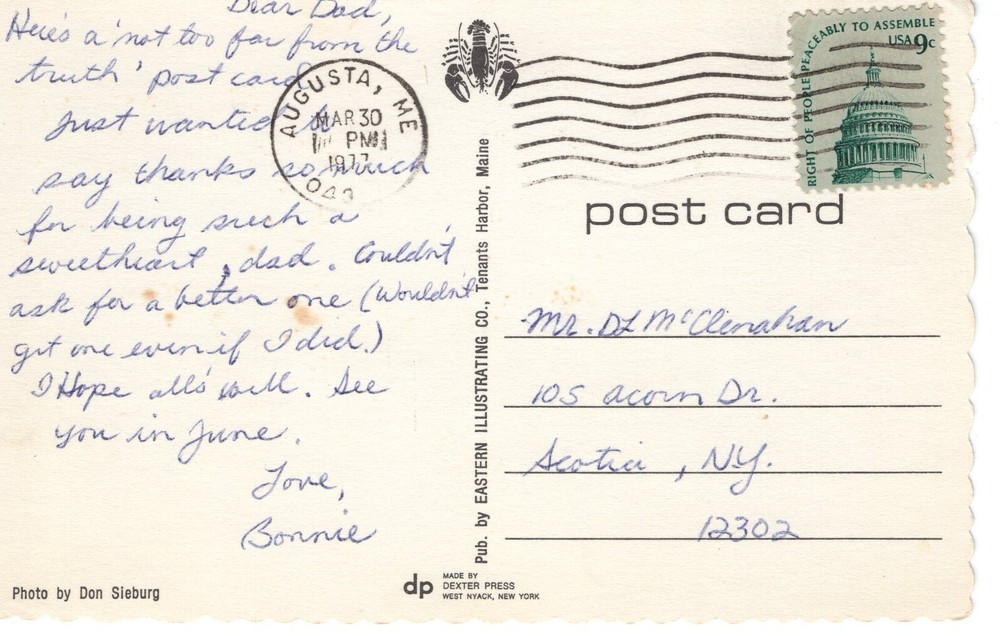 Dear Dad,
Here's a 'not too far from the
truth' post card.
Just wanted to
say thanks so much
for being such a
sweetheart, dad. Couldn't
ask for a better one (Wouldn't
get one even if I did.)
I Hope all's well. See
you in June.
Love,
Bonnie
Photo by Don Sieburg
AUGUSTA, ME
MAR 30
PM
1977
Pub. by EASTERN ILLUSTRATING CO., Tenants Harbor, Maine
dp
MADE BY
DEXTER PRESS
WEST NYACK, NEW YORK
RIGHT OF PEOPLE PEACEABLY TO ASSEMBLE
USA 9c
post card
Mr. DL McClenahan
105 Acorn Dr.
Scotia, N.Y.
12302